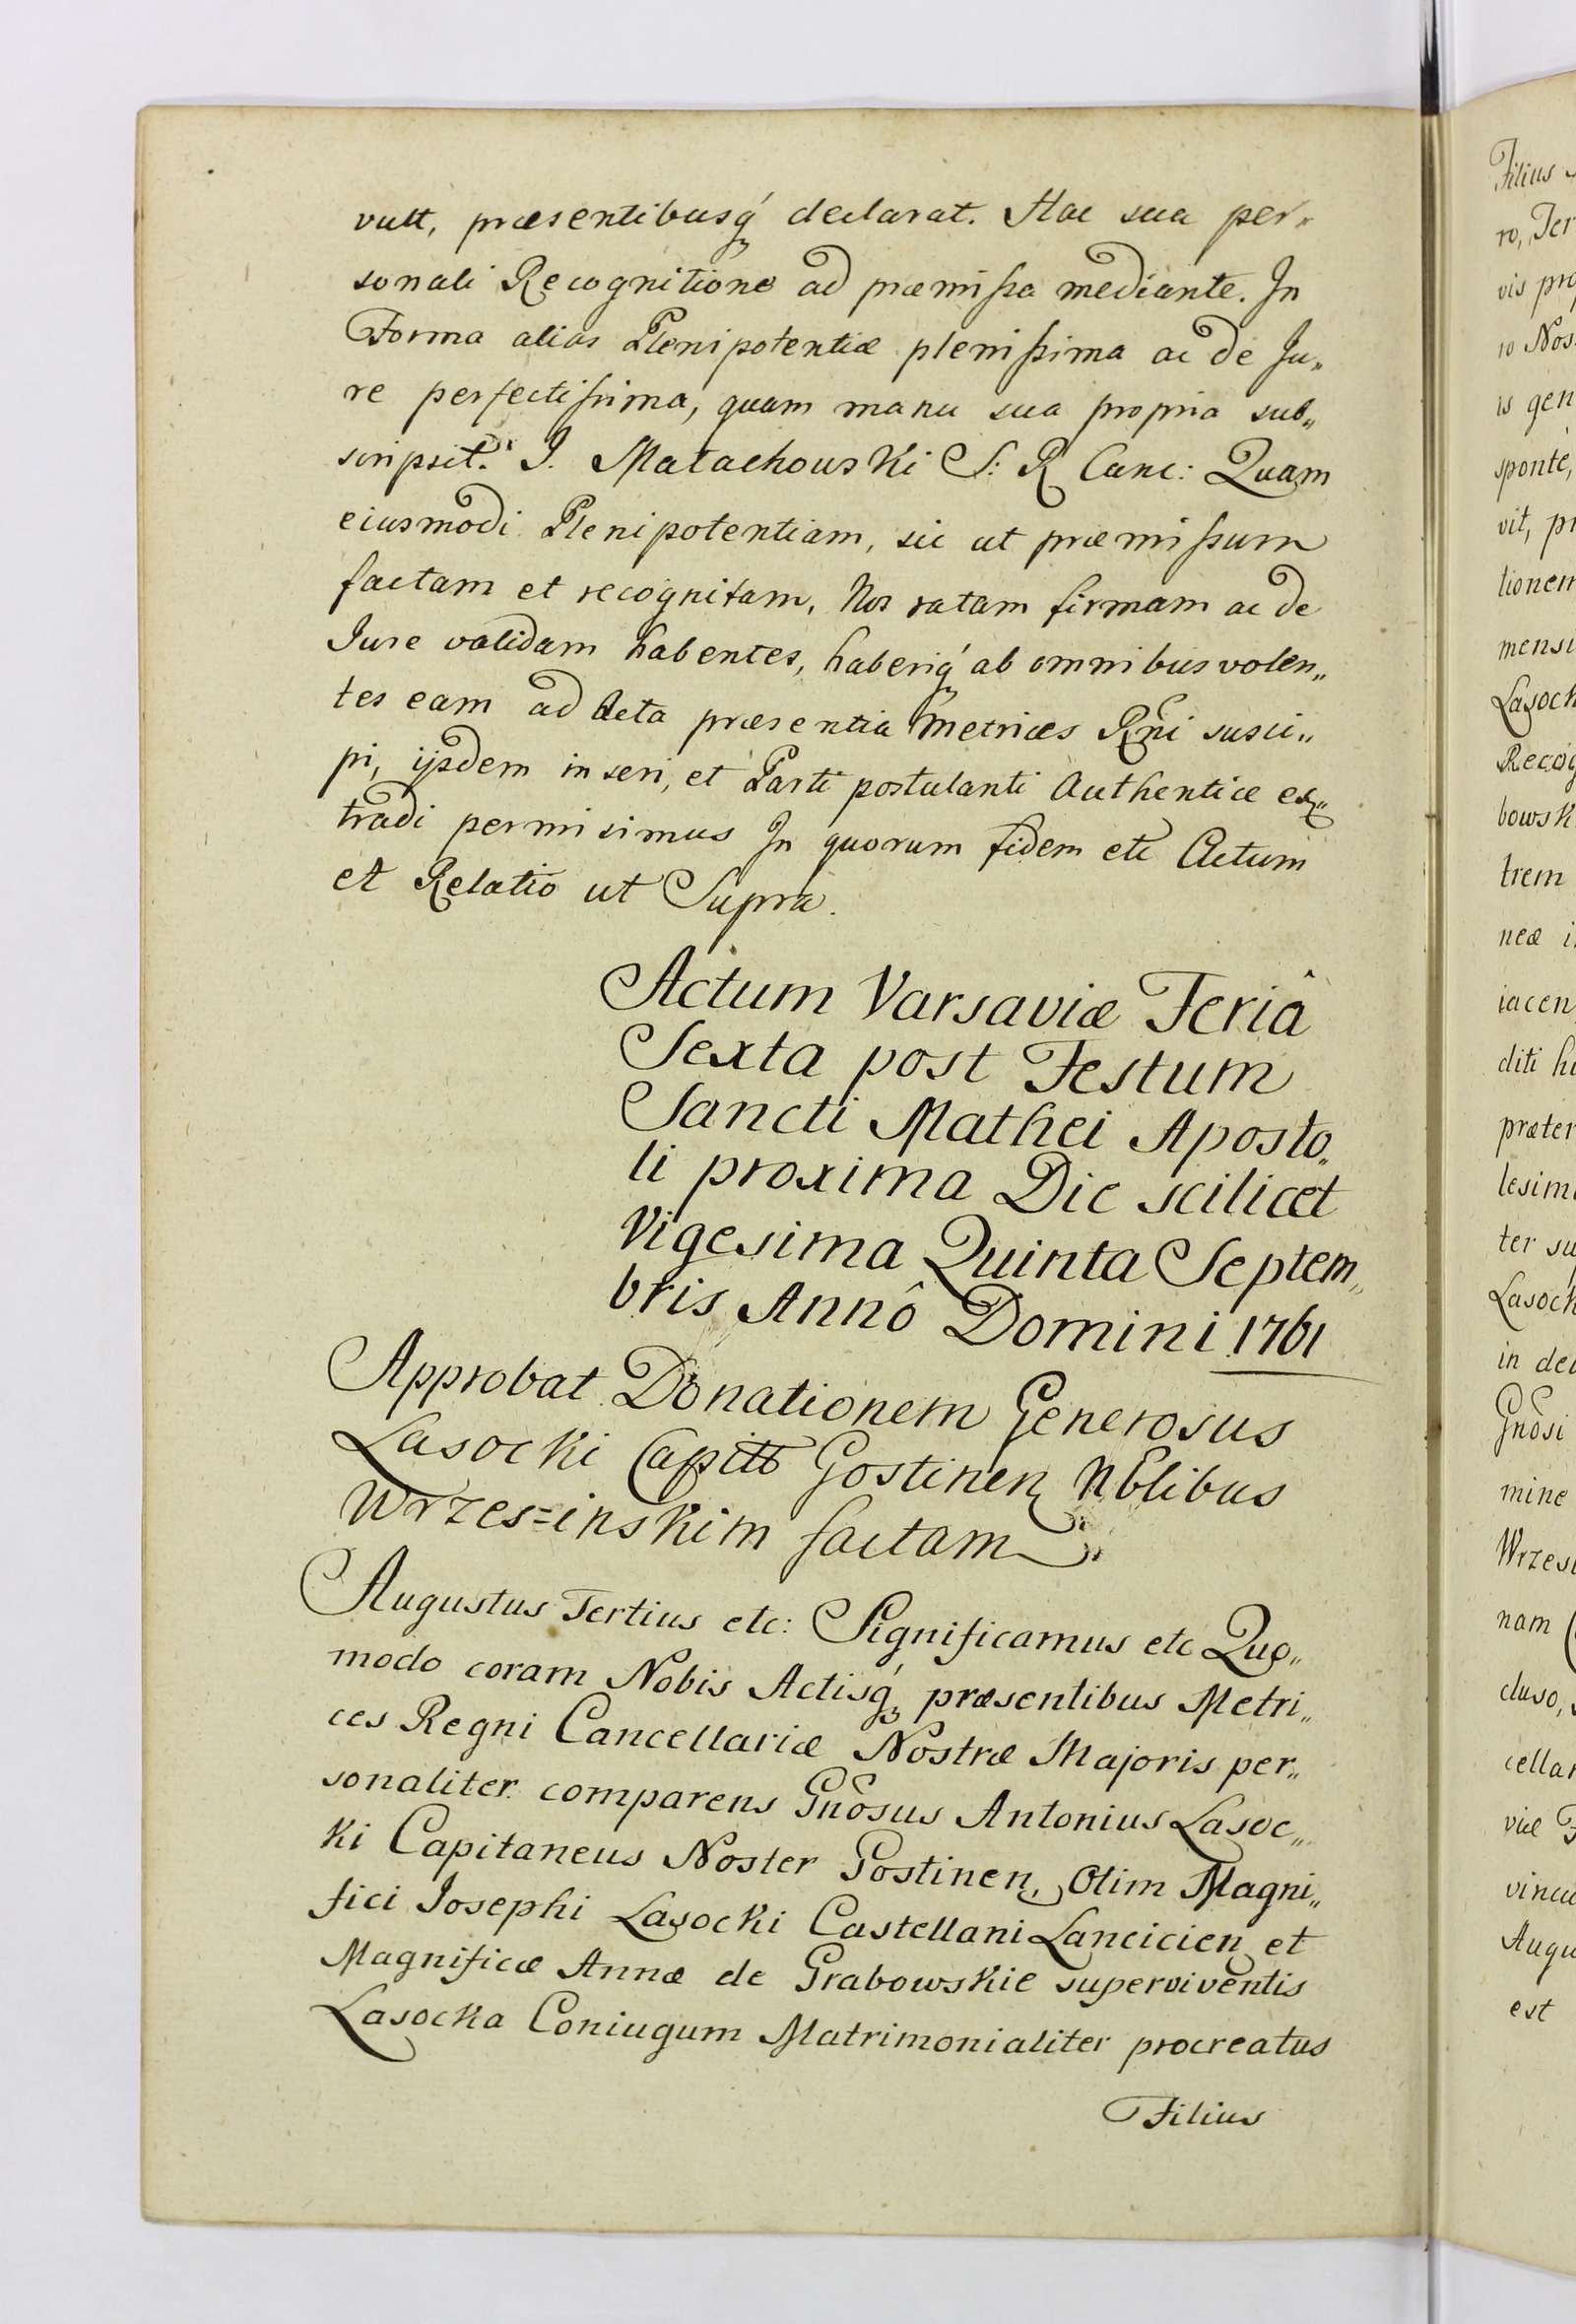 vult, præsentibusq́ declarat. Hac sua per„
sonali Recognitione ad præmissa mediante. In
Forma alias Plenipotentiæ plenissima ac de Ju„
re perfectissima, quam manu sua propria sub„
scripsit. J. Małachowski S: R Canc: Quam
eiusmodi Plenipotentiam, sic ut præmissum
factam et recognitam, Nos ratam firmam ac de
Iure validam habentes, haberiq́ ab omnibus volen„
tes eam ad Acta præsentia Metrices Rni susci„
pi, ijsdem inseri, et Parti postulanti Authentice ex„
tradi permisimus In quorum fidem etc Actum
et Relatio ut Supra.
Actum Varsaviæ Feriâ
Sexta post Festum
Sancti Mathei Aposto„
li proxima Die scilicet
Vigesima Quinta Septem„
bris Annô Domini 1761
Approbat Donationem Generosus
Lasocki Capitt Gostinen Nblibus
Wrzes=inskim factam
Augustus Tertius etc: Significamus etc Quo„
modo coram Nobis Actisq́ præsentibus Metri„
ces Regni Cancellariæ Nostræ Majoris per„
sonaliter comparens Gnôsus Antonius Lasoc„
ki Capitaneus Noster Gostinen, Olim Magni„
fici Josephi Lasocki Castellani Lancicien et
Magnificæ Annæ de Grabowskie superviventis
Lasocka Coniugum Matrimonialiter procreatus
Filius
Filius
ro, Ter
vis pro
io Nos
is gen
sponte,
vit, pr
tionem
mensi
Lasock
Recog
bowsk
trem
neæ i
iacen
diti hi
præter
lesim
ter su
Lasock
in dec
Gnôsi
mine
Wrzesi
nam
cluso,
cellar
viæ F
vincu
Augu
est